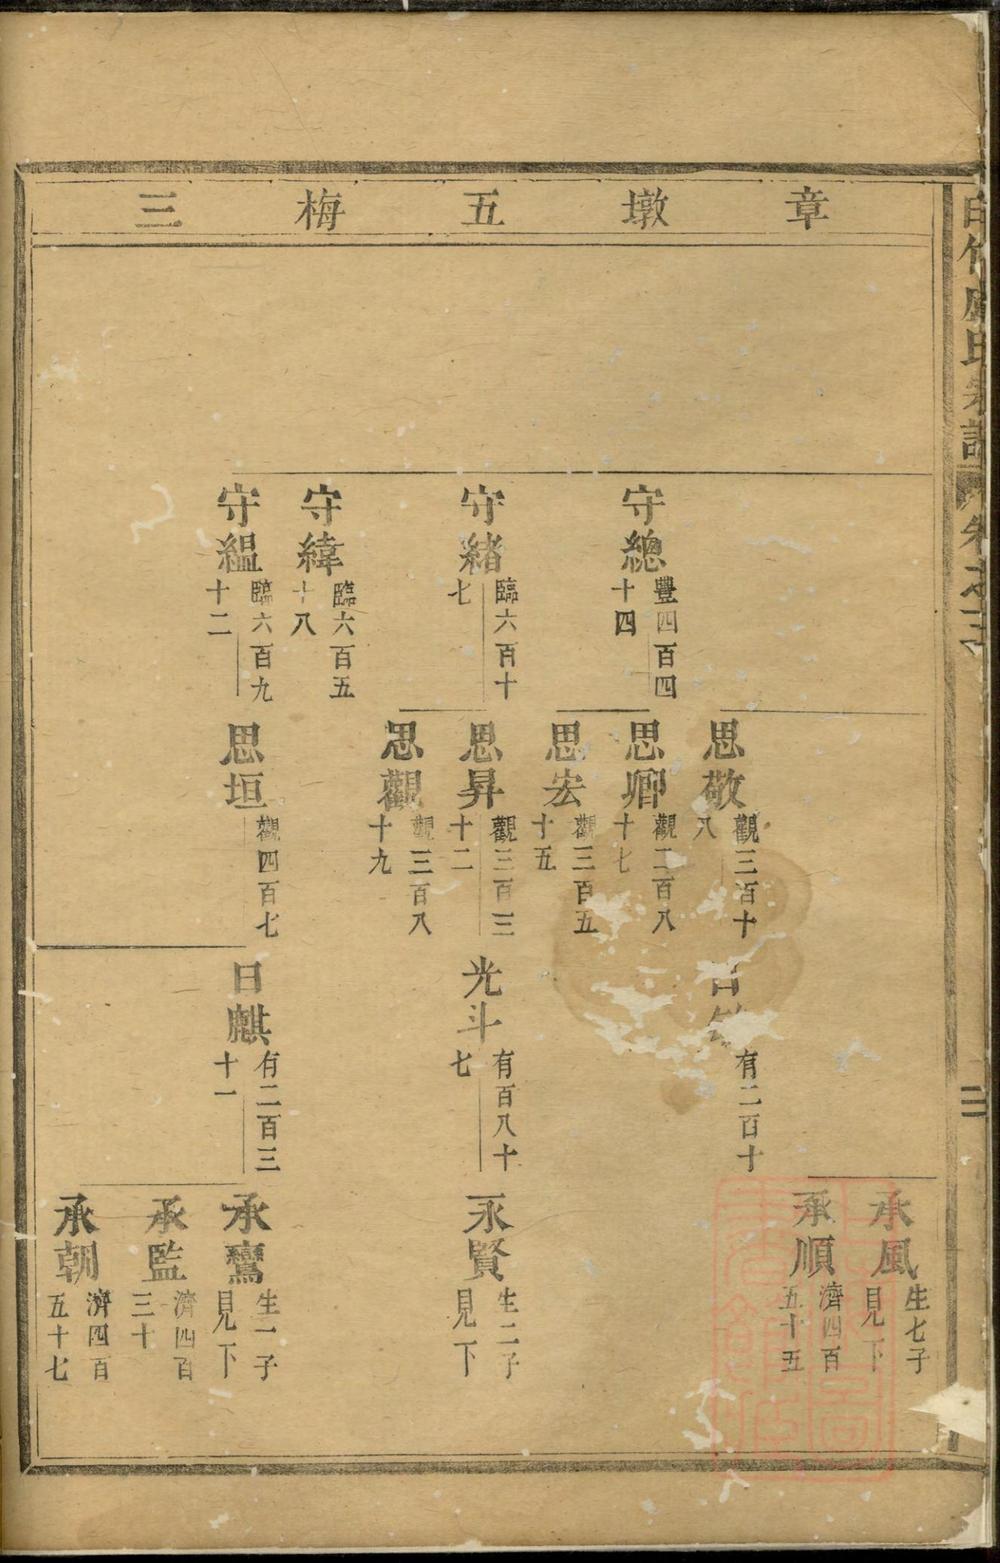 章墩五梅三
氏宗譜
卷之三
二
守總
豐四百四
十四
守緒
臨六百十
七
守緯
臨六百五
十八
守縕
臨六百九
十二
思敬
觀三百十
八
思卿
觀二百八
十七
思宏
觀三百五
十五
思昇
觀三百三
十二
思觀
觀三百八
十九
思垣
觀四百七
日
有二百十
光斗
有百八十
七
日麒
有二百三
十一
承風
生七子
見下
承順
濟四百
五十五
永賢
生二子
見下
承鸞
生一子
見下
承監
濟四百
三十
承朝
濟四百
五十七